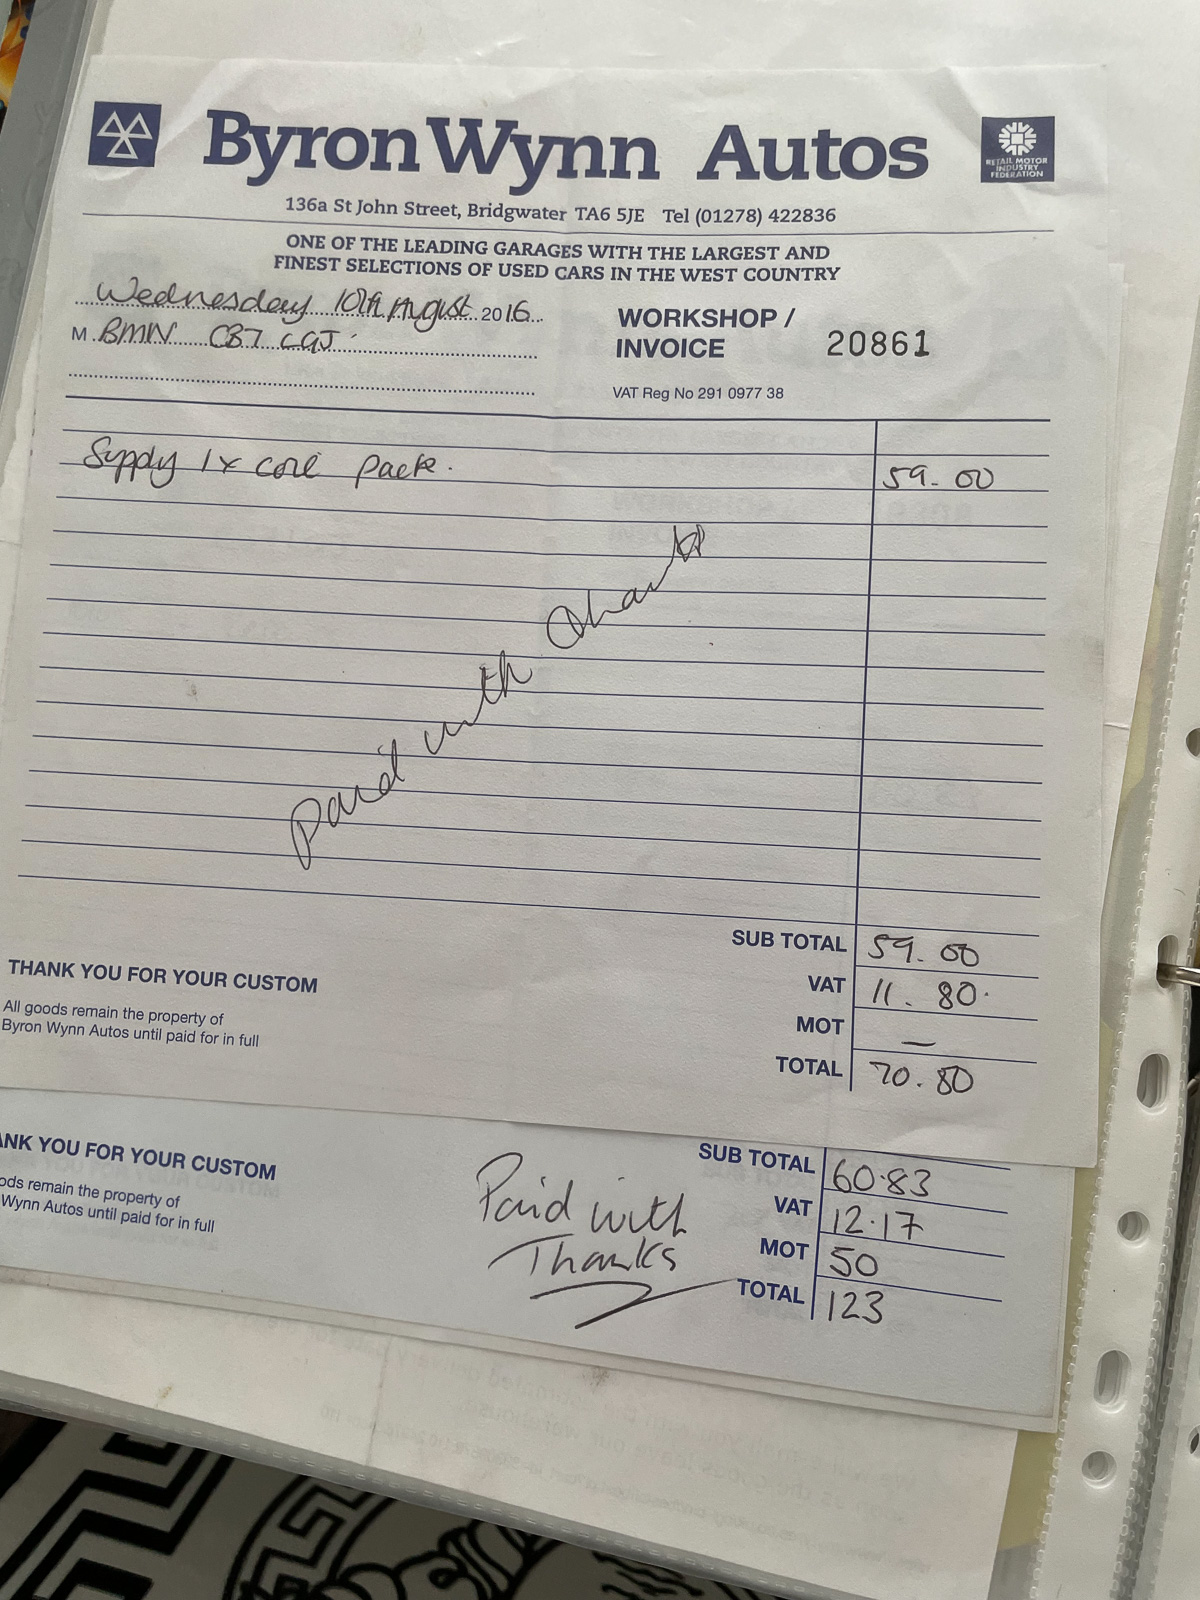 Byron Wynn Autos
RETAIL MOTOR
INDUSTRY
FEDERATION
136a St John Street, Bridgwater TA6 5JE Tel (01278) 422836
ONE OF THE LEADING GARAGES WITH THE LARGEST AND
FINEST SELECTIONS OF USED CARS IN THE WEST COUNTRY
Wednesday 10th August 2016
M. BMW CB7 CGJ.
WORKSHOP /
INVOICE 20861
VAT Reg No 291 0977 38
Supply 1x coil pack. 59.00
Paid with thanks
SUB TOTAL 59.00
VAT 11.80
MOT —
TOTAL 70.80
THANK YOU FOR YOUR CUSTOM
All goods remain the property of
Byron Wynn Autos until paid for in full
ANK YOU FOR YOUR CUSTOM
ods remain the property of
Wynn Autos until paid for in full
Paid with
Thanks
SUB TOTAL 60.83
VAT 12.17
MOT 50
TOTAL 123